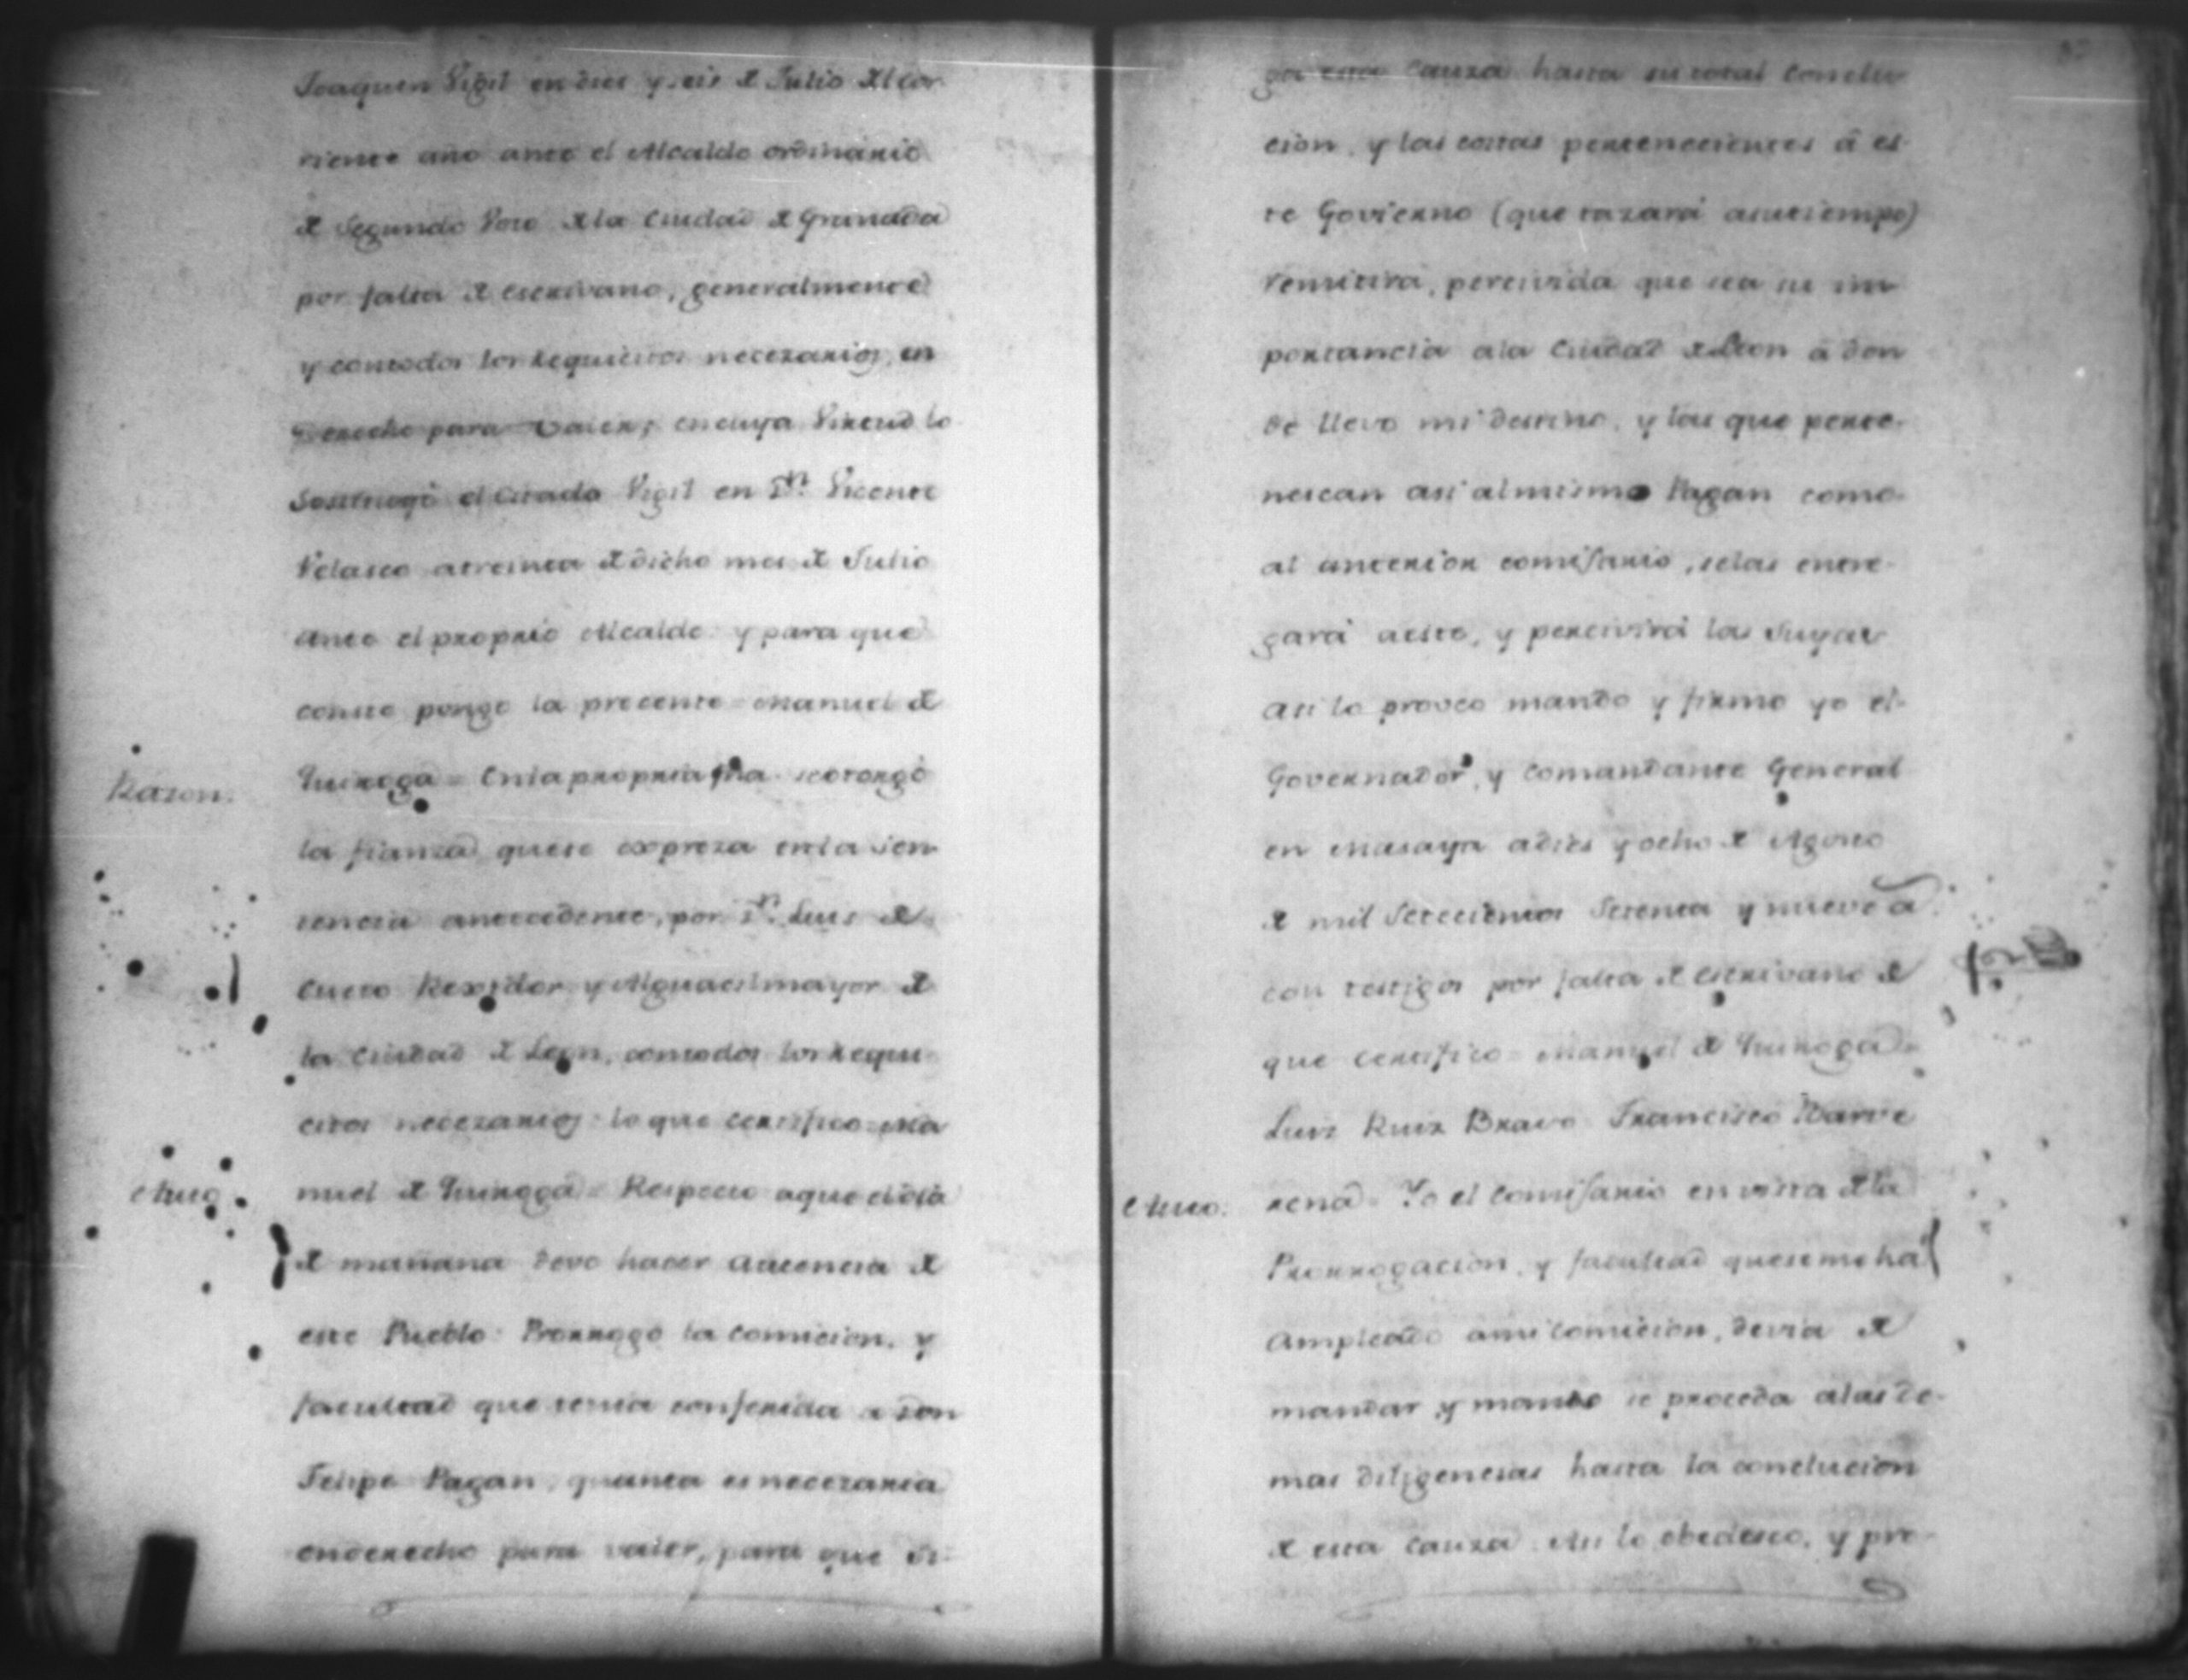 Joaquin Vigil en dies y seis de Julio del cor
riente año ante el Alcalde ordinario
de Segundo Voto de la Ciudad de Granada
por falta de escrivano, generalmente
y contodos los Requicitos necezarios, en
Derecho para valer; en cuya Virtud lo
Sostituyó el Citado Vigil en Dn. Vicente
Velasco atreinta de dicho mes de Julio
ante el proprio Alcalde: y para que
conste pongo la precente = Manuel de
Razon.
Quiroga = Enla propria fha. se otorgó
la fianza, quese expreza enla sen
tencia antecedente, por Dn. Luis de
Cueto Rexidor y Alguacil mayor de
la Ciudad de Leon, contodos los Requi
citos necezarios: lo que certifico = Ma
Auto
nuel de Quiroga = Respecto aque el dia
de mañana devo hacer Aucencia de
este Pueblo: Prorrogo la comicion, y
facultad que tenia conferida a Don
Felipe Pagan, quanta es necezaria
enderecho para valer, para que si
ga esta Cauza hasta su total conclu
cion, y las costas pertenecientes â es
te Govierno (que tazará asutiempo)
remitirá, percivida que sea su im
portancia ala Ciudad de Leon â don
de llevo mi destino, y las que perte
nescan asi al mismo Pagan como
al anterior comisario, selas entre
gará aeste, y percivirá las Suyas
Asi lo proveo mando y firmo yo el
Governador, y Comandante General
en Masaya adies y ocho de Agosto
de mil Setecientos Setenta y nueve a.
con testigos por falta de escrivano de
que certifico = Manuel de Quiroga =
Luis Ruiz Bravo = Francisco Navar
Auto.
rena = Yo el Comisario en vista dela
Prorrogacion, y facultad queseme ha
Ampleado ami Comicion, devia de
mandar y mando se proceda alas de
mas diligencias hasta la conclucion
de esta Cauza. Asi lo obedesco, y pro